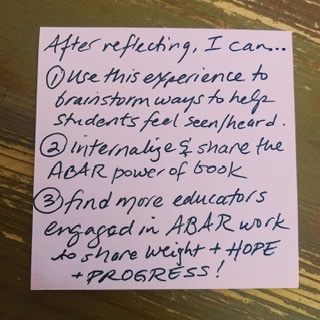 After reflecting, I can...
① Use this experience to
brainstorm ways to help
students feel seen/heard.
② internalize & share the
ABAR power of book
③ find more educators
engaged in ABAR work
to share weight + HOPE
+ PROGRESS!